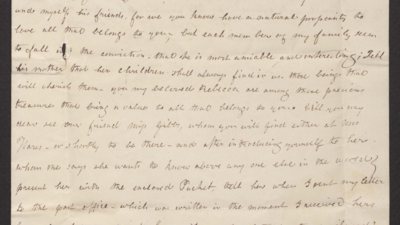 under myself his friends, for we you know have a natural propensity to
love all that belongs to you, but each member of my family seem
to fall in the conviction, that she is most amiable and interesting; Tell
his mother that her children shall always find in me those beings that
will cherish them. you my beloved Rebecca are among those precious
treasures that bring a value to all that belongs to you. Will you my
dear see our friend Miss Gibbs, whom you will find either at
or shortly to be there. and after introducing yourself to her
whom she says she wants to know above any one else in the world,
present her with the enclosed Packet, tell how when I sent my letter
to the post office. which was written in the moment I received hers